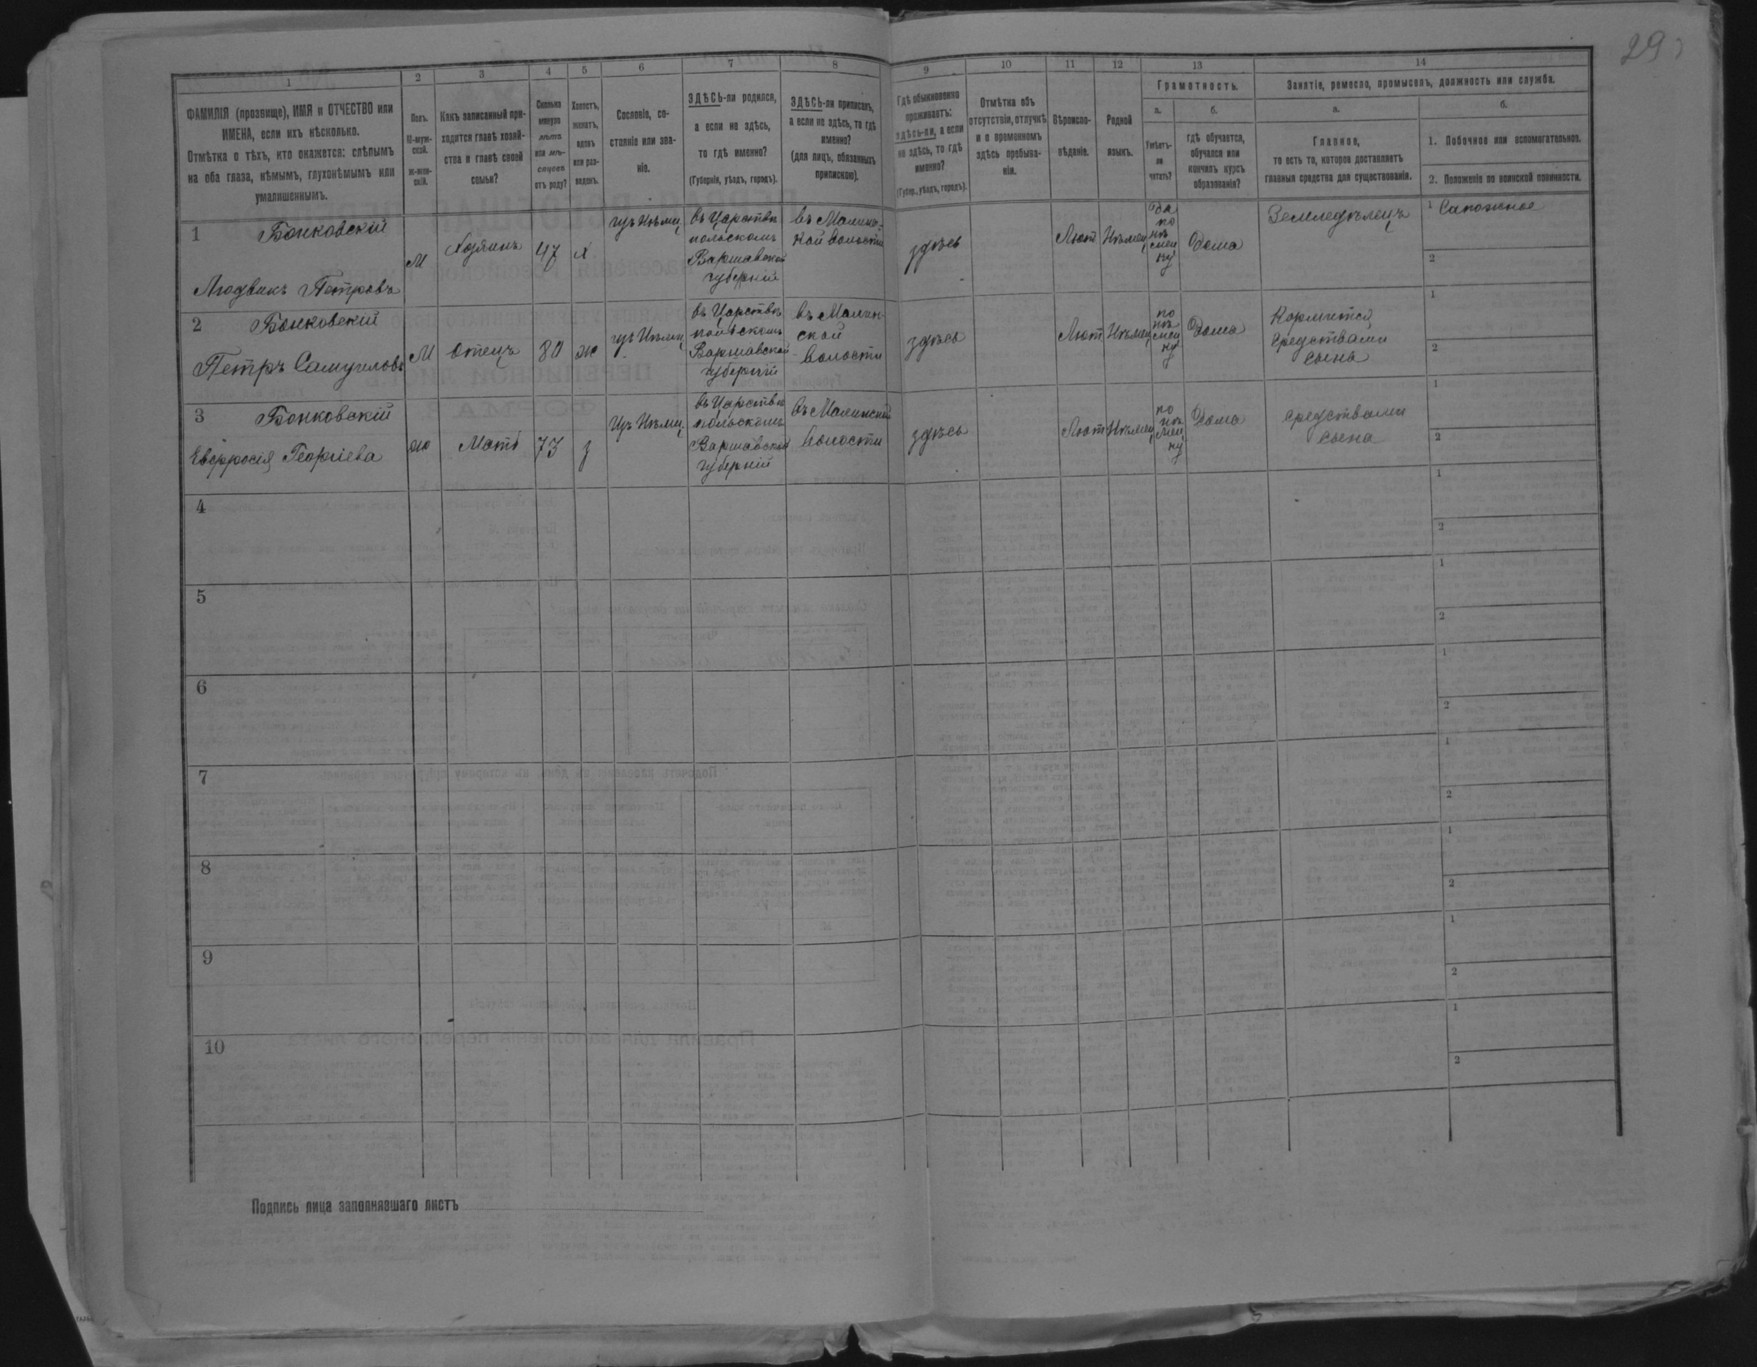 29
1
2
3
4
5
6
7
8
9
10
11
12
13
14
ФАМИЛІЯ (прозвище), ИМЯ и ОТЧЕСТВО или
ИМЕНА, если ихъ нѣсколько.
Отмѣтка о тѣхъ, кто окажется: слѣпымъ
на оба глаза, нѣмымъ, глухонѣмымъ или
умалишеннымъ.
Полъ.
М-муж-
ской.
ж-жен-
скій.
Какъ записанный при-
ходится главѣ хозяй-
ства и главѣ своей
семьи?
Сколько
минуло
лѣтъ
или мѣ-
сяцевъ
отъ роду?
Холостъ,
женатъ,
вдовъ
или раз-
веденъ.
Сословіе, со-
стояніе или зва-
ніе.
ЗДѢСЬ-ли родился,
а если не здѣсь,
то гдѣ именно?
(Губернія, уѣздъ, городъ).
ЗДѢСЬ-ли приписанъ,
а если не здѣсь, то гдѣ
именно?
(для лицъ, обязанныхъ
припискою).
Гдѣ обыкновенно
проживаетъ:
здѣсь-ли, а если
не здѣсь, то гдѣ
именно?
(Губер., уѣздъ, городъ).
Отмѣтка объ
отсутствіи, отлучкѣ
и о временномъ
здѣсь пребыва-
ніи.
Вѣроиспо-
вѣданіе.
Родной
языкъ.
Грамотность.
а.
Умѣетъ-
ли
читать?
б.
гдѣ обучается,
обучался или
кончилъ курсъ
образованія?
Занятіе, ремесло, промыселъ, должность или служба.
а.
Главное,
то есть то, которое доставляетъ
главныя средства для существованія.
б.
1. Побочное или вспомогательное.
2. Положеніе по воинской повинности.
1 Бонковскій
Людвикъ Петровъ
М
Хозяинъ
47
х
изъ Нѣмц
въ Царствѣ
польскомъ
Варшавской
губерніи
въ Малин-
кой волости
здѣсь
Лют
Нѣмец
Да
по
нѣ
мец
ку
Дома
Земледѣлецъ
1 Сапожное
2
2 Бонковскій
Петръ Самуиловъ
М
отецъ
80
ж
изъ Нѣмц
въ Царствѣ
польскомъ
Варшавской
губерніи
въ Малин-
ской
волости
здѣсь
Лют
Нѣмец
по
нѣ
мец
ку
Дома
Кормится
средствами
сына
1
2
3 Бонковскій
Евфросія Георгіева
ж
Мать
73
з
изъ Нѣмц
въ Царствѣ
польскомъ
Варшавской
губерніи
въ Малинской
волости
здѣсь
Лют
Нѣмец
по
нѣ
мец
ку
Дома
средствами
сына
1
2
4
1
2
5
1
2
6
1
2
7
1
2
8
1
2
9
1
2
10
1
2
Подпись лица заполнявшаго листъ